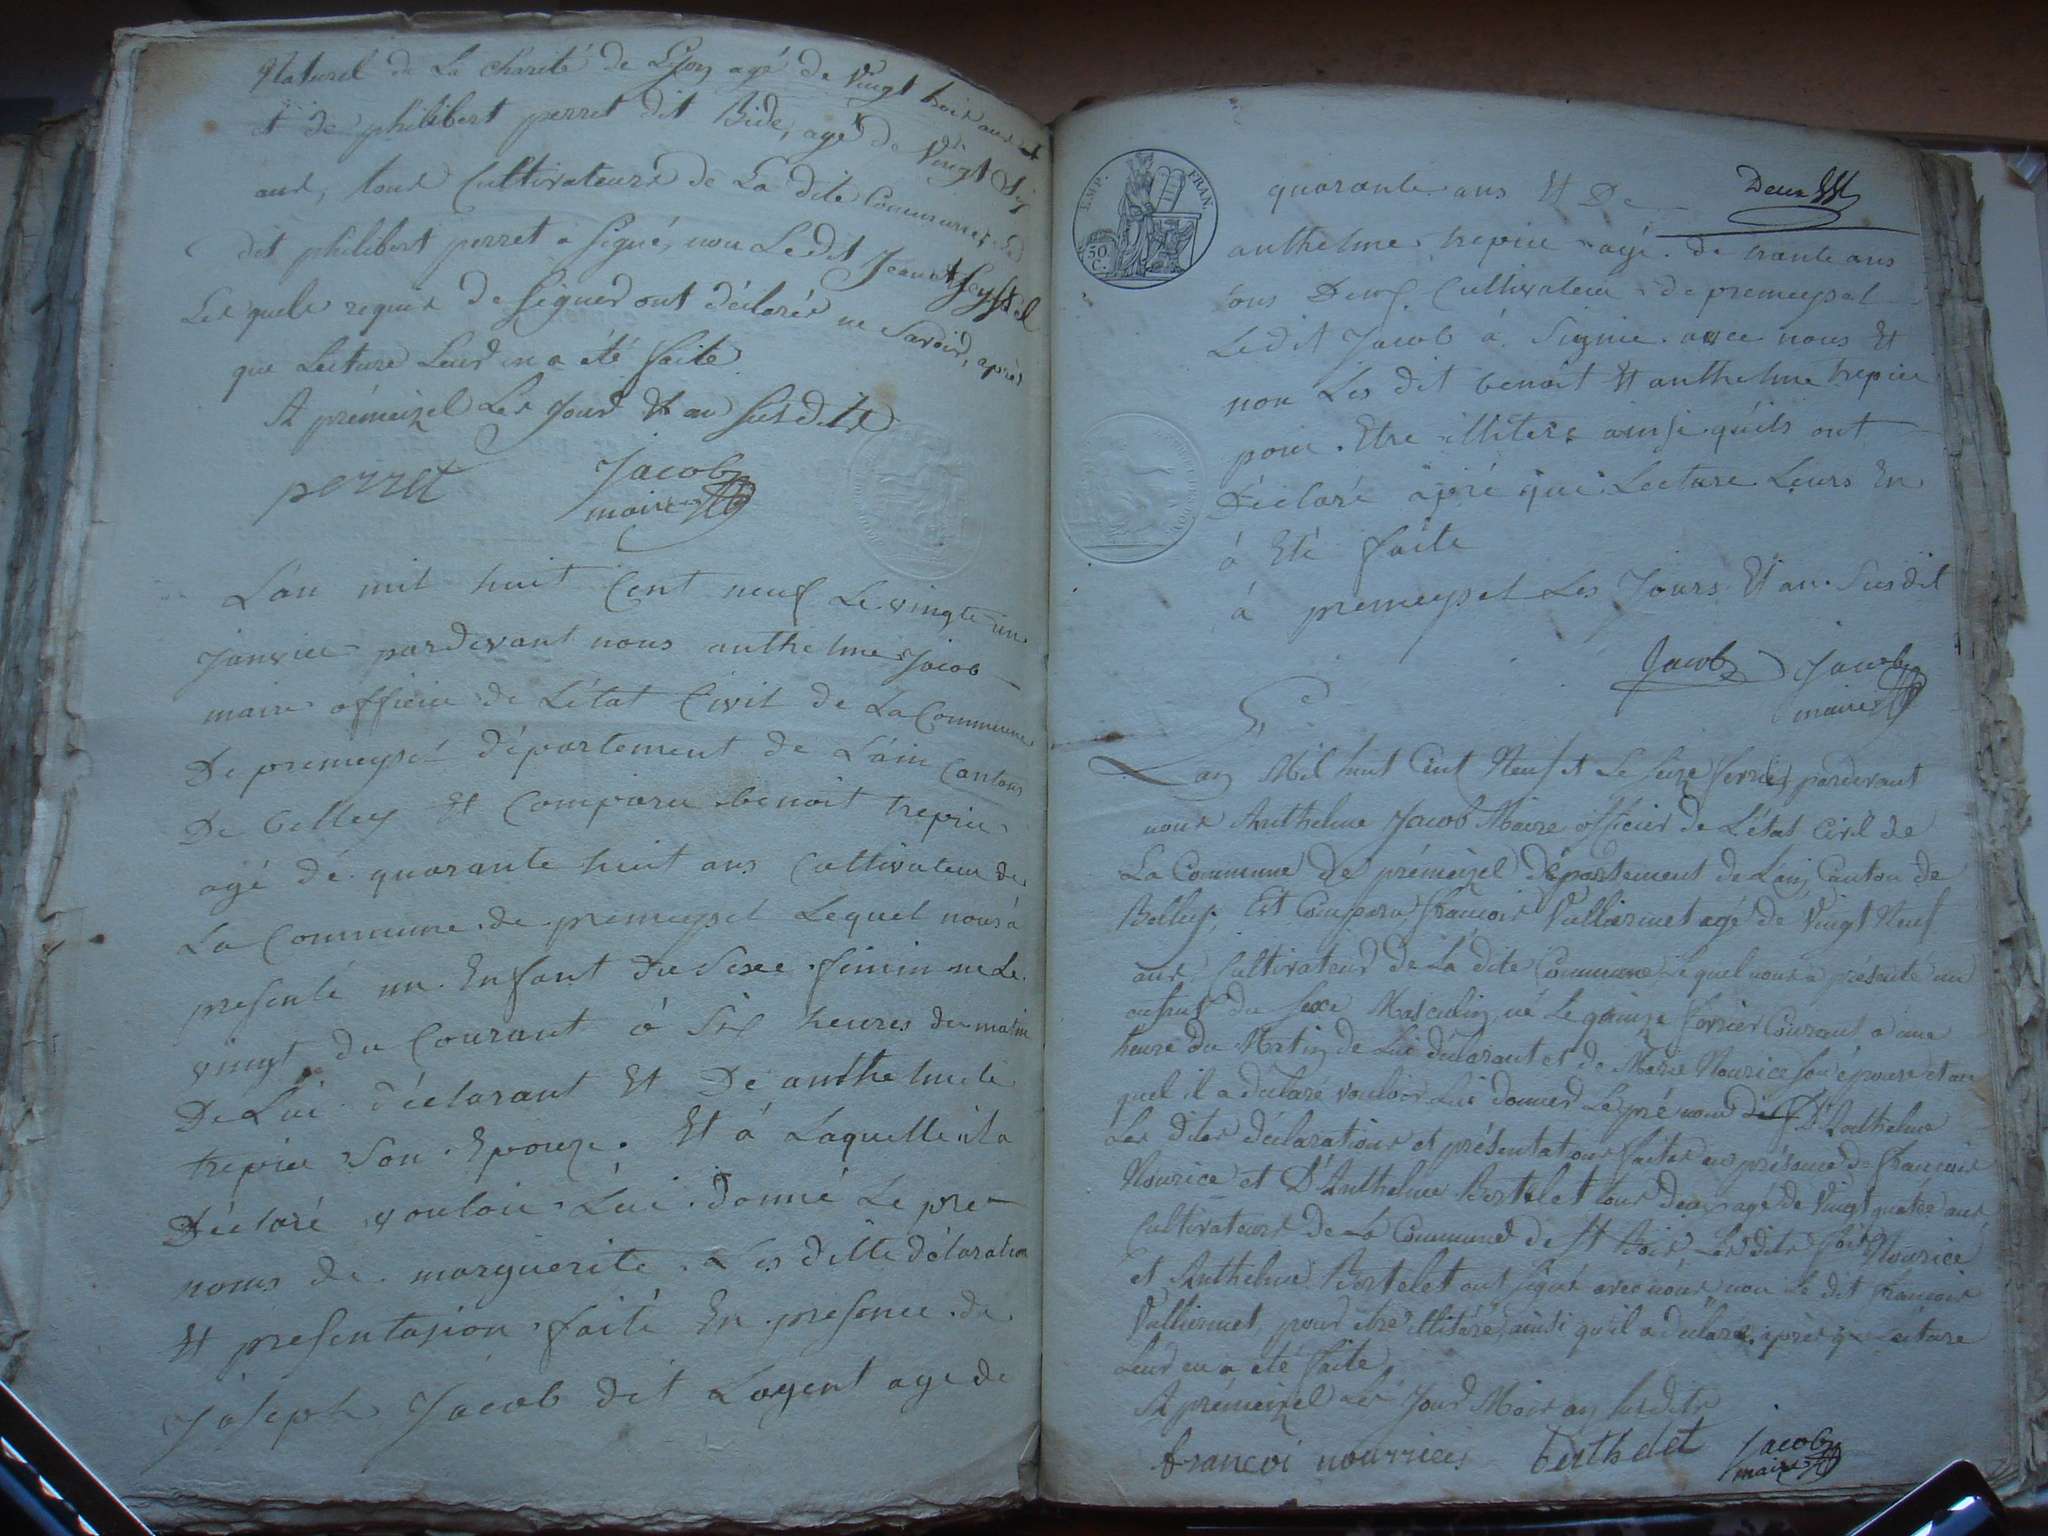 Naturel de La charité de Lyon agé de vingt huit ans et
et de philibert perret dit Bide, agé de Vingt Six
ans, tous Cultivateurs de La dite Commune, Le
dit philibert perret a signé, non Le dit Jean et Seyssel
Les quels requis de Signer ont déclarés ne Savoir, après
que Lecture Leur en a été faite
A prémeizel Les Jour et an Susdits
perret Jacob
maire
L'an mil huit Cent neuf Le vingte un
Janvier pardevant nous anthelme Jacob
maire officier de L'état Civil de La Commune
De premeysel département de L'ain Cantons
De belley Et Comparu benoit trepier
agé de quarante huit ans Cultivateur de
La Commune de premeysel Lequel nous à
presenté un Enfant du Sexe feminin né Le
vingt du Courant à Six heures du matin
De Lui déclarant Et De anthelmete
trepier Son Epouze. Et à Laquelle il a
Déclaré vouloir Lui donné Le pre
noms de marguerite Les ditte déclaration
Et presentasion faite En presence de
Joseph Jacob dit Lagent age de
IMP. FRAN.
50 C.
quarante ans Et De
Deux
anthelme trepier agé de trante ans
tous Deux Cultivateur de premeysel
Ledit Jacob à Signie avec nous Et
non Les dit benoit Et anthelme trepier
pour Etre illitere ainsi quils ont
Déclaré apré que Lecture Leurs En
à Eté faite
à premeysel Les Jours Et an Susdit
Jacob Jacob
maire
L'an Mil huit Cent Neuf et Le seize fevrier pardevant
nous Anthelme Jacob Maire officier de L'état Civil de
La Commune De prémeizel Département de L'ain Canton de
Belley, Est Comparu françois Vulliermet agé de Vingt Neuf
ans, Cultivateur de La dite Commune Lequel nous a présenté un
enfant du Sexe Masculin né Le quinze fevrier Courant a une
heure du Matin de Lui déclarant et de Marie Nourice son épouse et au
quel il a déclaré vouloir Lui donner Le prénom D'Anthelme
Les dites déclarations et présentations faites en présence de françois
Nourice et D'Anthelme Bertelet tous deux agé de Vingt quatre ans
Cultivateurs de La Commune de St Bois Les dits fois Nourice
et Anthelme Bertelet ont signé avec nous, non Le dit françois
Vulliermet pour être illitéré ainsi qu'il a déclaré après que Lecture
Leur en a été faite
A prémeizel Les Jour Mois an Susdits
francoi nourrice Berthelet Jacob
maire